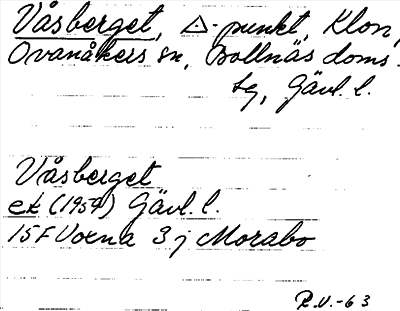 Våsberget, △-punkt, Klon,
Ovanåkers sn, Bollnäs doms.
tg, Gävl. l.
Våsberget
ek (1959) Gävl. l.
15F Voxna 3 j Morabo
R.V.-63